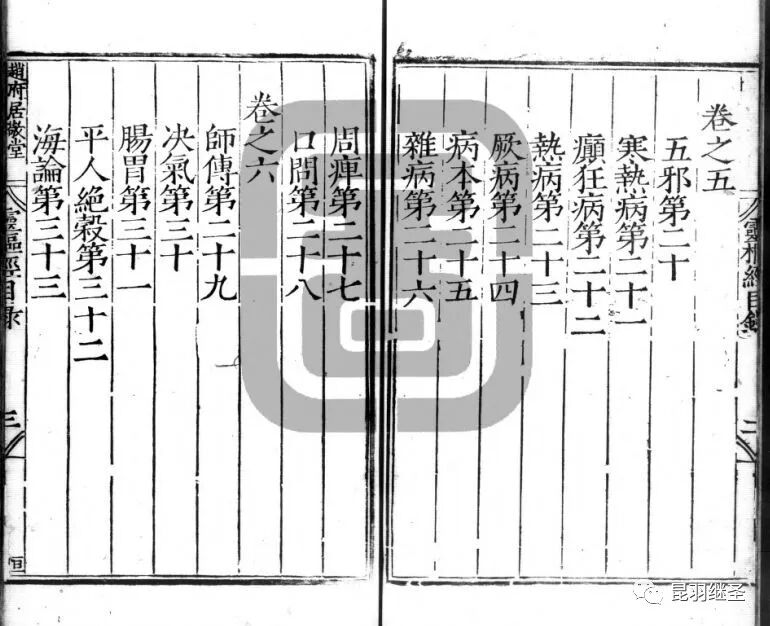 卷之五
五邪第二十
寒熱病第二十一
癲狂病第二十二
熱病第二十三
厥病第二十四
病本第二十五
雜病第二十六
靈樞經目錄
二
周痺第二十七
口問第二十八
卷之六
師傳第二十九
決氣第三十
腸胃第三十一
平人絕穀第三十二
海論第三十三
趙府居敬堂
靈樞經目录
三
昆羽继圣